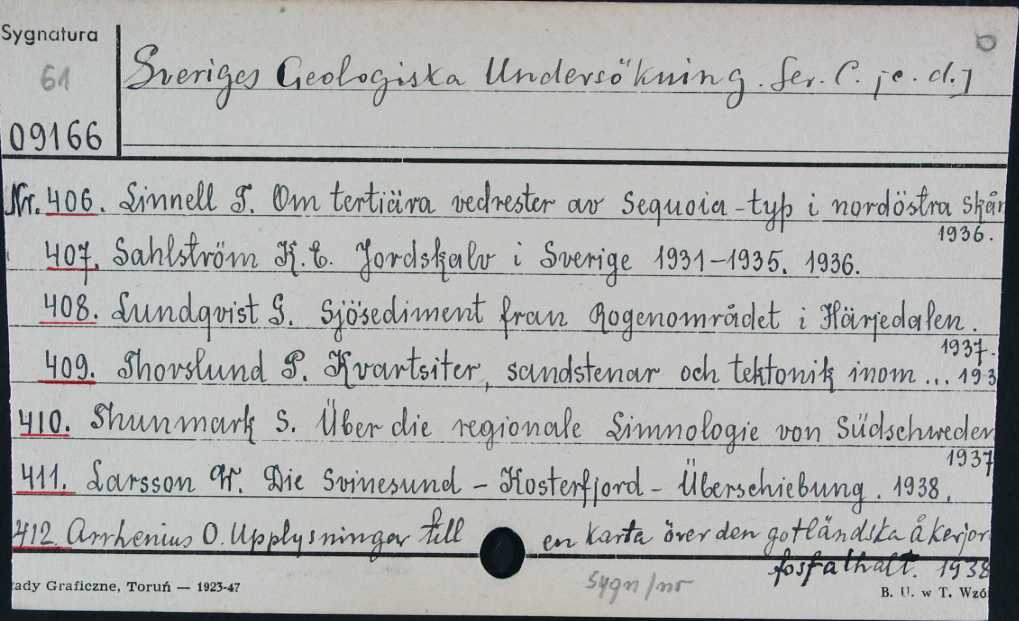 Sygnatura
61
09166
Sveriges Geologiska Undersökning. Ser. C. [c. d.]
Nr. 406. Linnell T. Om tertiära vedrester av Sequoia-typ i nordöstra Skån
1936.
407. Sahlström K. E. Jordskalv i Sverige 1931-1935. 1936.
408. Lundqvist G. Sjösediment fran Rogenområdet i Härjedalen.
1937.
409. Thorslund P. Kvartsiter, sandstenar och tektonik inom ... 193
410. Thunmark S. Über die regionale Limnologie von Südschweden
1937
411. Larsson W. Die Svinesund - Kosterfjord - Überschiebung. 1938.
412 Arrhenius O. Upplysningar till en karta över den gotländska åkerjor
fosfathalt. 1938
Sygn/nr
ady Graficzne, Toruń — 1923-47
B. U. w T. Wzó